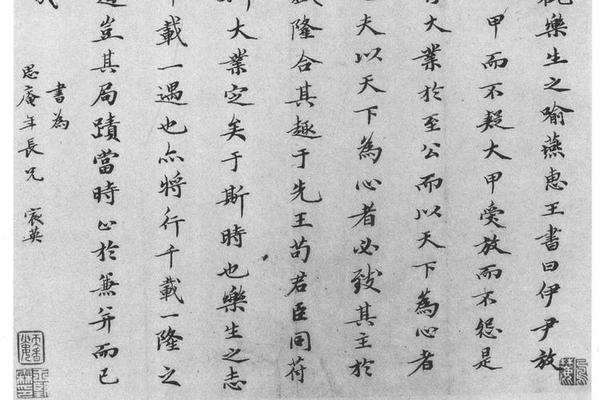 樂生之喻燕惠王書曰伊尹放
甲而不疑大甲受放而不怨是
大業於至公而以天下為心者
夫以天下為心者必致其主於
隆合其趣于先王苟君臣同符
大業定矣于斯時也樂生之志
載一遇也亦將行千載一隆之
豈其局蹟當時止於兼并而已
書為
思庵年長兄 宸英